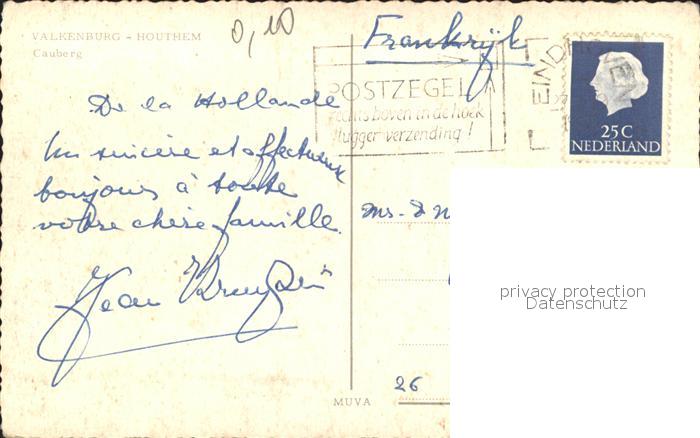 VALKENBURG - HOUTHEM
Cauberg
0,10
Frankrijk
POSTZEGEL
rechts boven in de hoek
vlugger verzending!
EINDHOVEN
25 C
NEDERLAND
De la Hollande
Un sincère et affectueux
bonjours à toute
votre chère famille.
Jean
Mrs. &
privacy protection
Datenschutz
26
MUVA